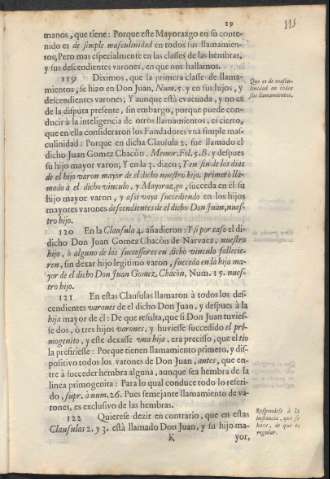 29
manos, que tiene: Porque este Mayorazgo en su conte-
nido es de simple masculinidad en todos sus llamamien-
tos, Pero mas especialmente en las clases de las hembras,
y sus descendientes varones, en que nos hallamos.
119 Dezimos, que la primera classe de llama-
mientos, se hizo en Don Juan, Num. 5. y en sus hijos, y
descendientes varones; Y aunque està evacuada, y no es
de la disputa presente, sin embargo, porque puede condu-
cir à la inteligencia de otros llamamientos, es cierto,
que en ella consideraron los Fundadores vna simple mas-
culinidad: Porque en dicha Clausula 2. fue llamado el
dicho Juan Gomez Chacòn. Memor. Fol. 5. B. y despues
su hijo mayor varon, Y en la 3. dizen; Y en fin de los dias
de el hijo varon mayor de el dicho nuestro hijo, primero lla-
mado à el dicho vinculo, y Mayorazgo, suceda en èl su
hijo mayor varon, y assi vaya succediendo en los hijos
mayores varones descendientes de el dicho Don Juan, nues-
tro hijo.
120 En la Clausula 4. añadieron: Y si por caso el di-
dicho Don Juan Gomez Chacòn de Narvaez, nuestro
hijo, ò alguno de los successores en dicho vinculo fallecie-
ren, sin dexar hijo legitimo varon, suceda en lo hijo ma-
yor de el dicho Don Juan Gomez, Chacòn, Num. 15. nues-
tro hijo.
121 En estas Clausulas llamaron à todos los des-
cendientes varones de el dicho Don Juan, y despues à la
hija mayor de èl: De que resulta, que si Don Juan tuvies-
se dos, ò tres hijos varones, y huviesse succedido el pri-
mogenito, y este dexasse vna hija, era preciso, que el tio
la prefiriesse: Porque tienen llamamiento primero, y dis-
positivo todos los varones de Don Juan, antes, que en-
tre à succeder hembra alguna, aunque sea hembra de la
linea primogenita: Para lo qual conduce todo lo referi-
do, supr. à num. 26. Pues semejante llamamiento de va-
rones, es exclusivo de las hembras.
122 Quierese dezir en contrario, que en estas
Clausulas 2. y 3. està llamado Don Juan, y su hijo ma-
K yor,
Que es de mascu-
linidad en todos
sus llamamientos.
Respondese à la
instancia, que se
haze, de que es
regular.